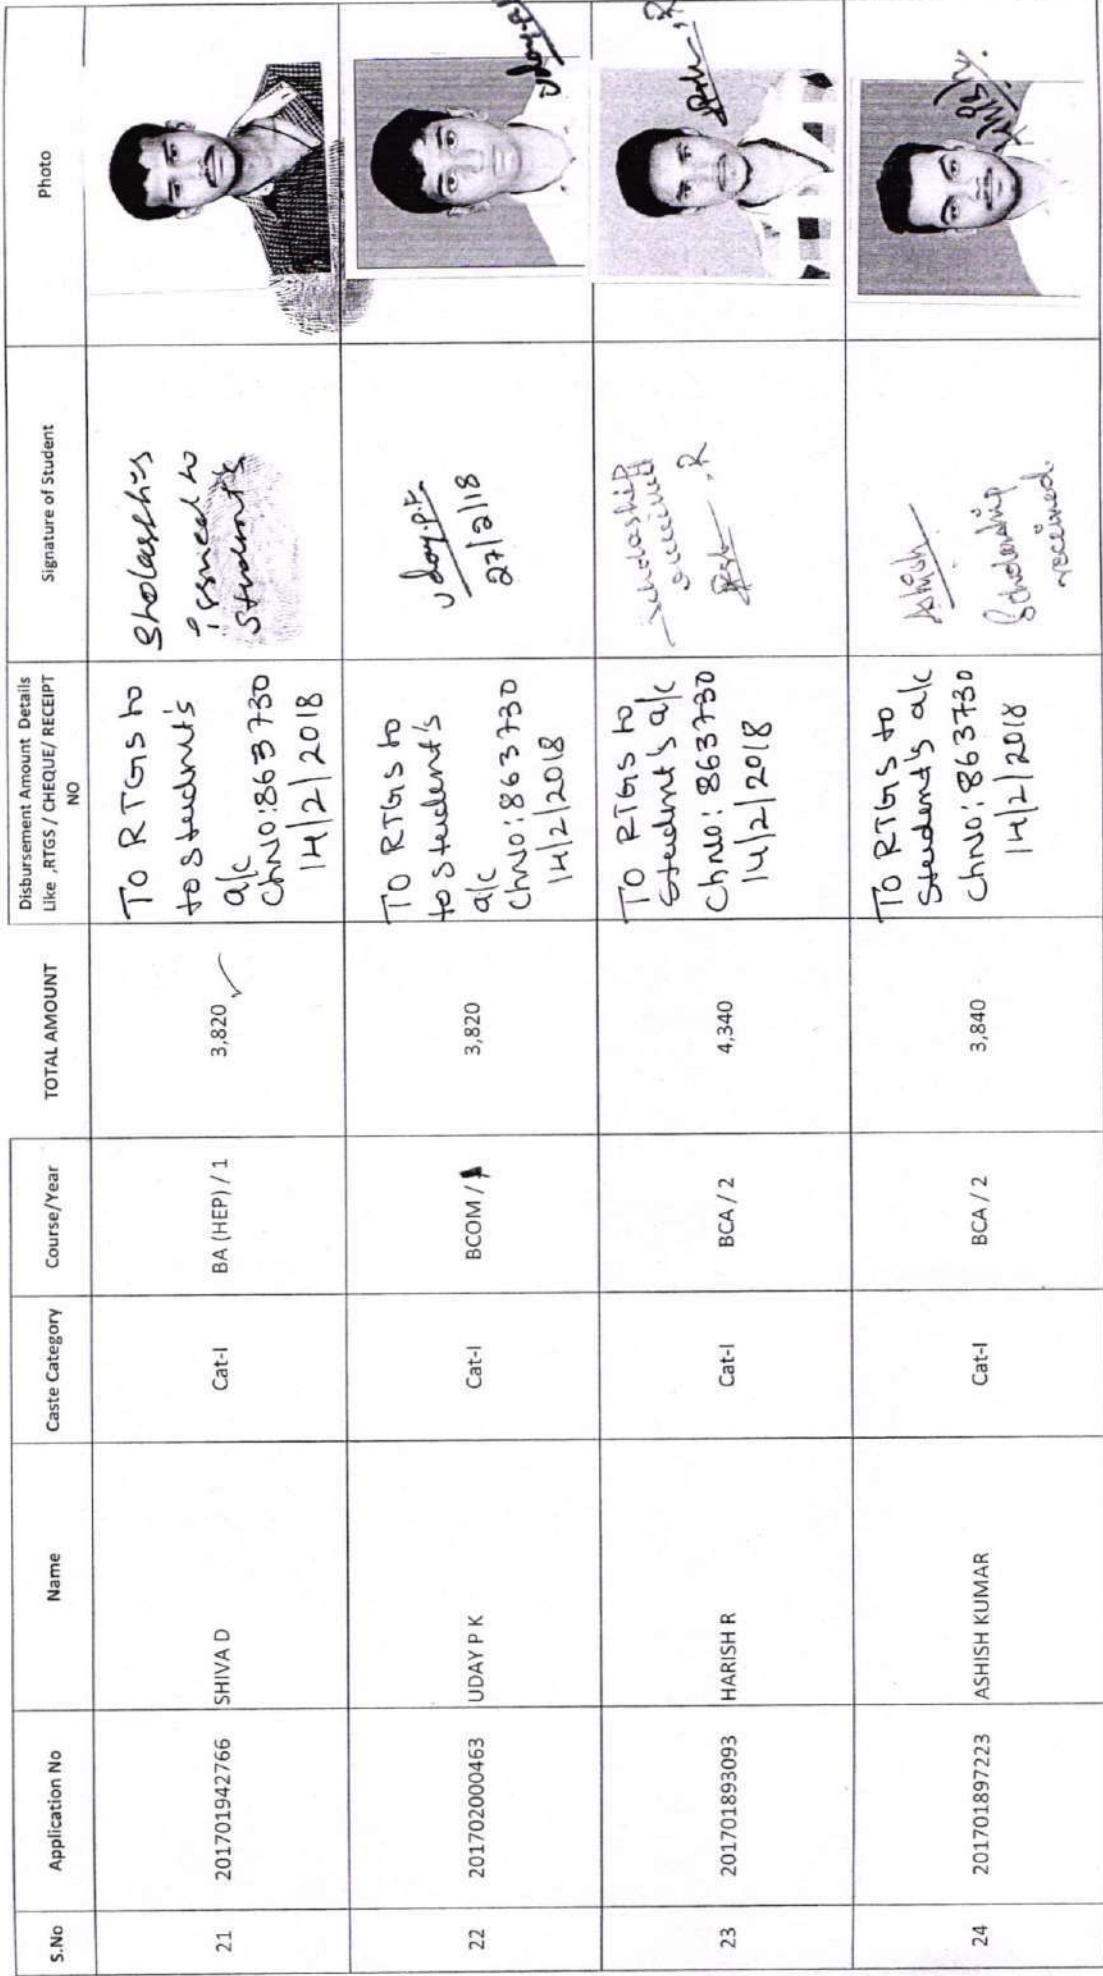 S.No
Application No
Name
Caste Category
Course/Year
TOTAL AMOUNT
Disbursement Amount Details
Like ,RTGS / CHEQUE/ RECEIPT
NO
Signature of Student
Photo
21
201701942766
SHIVA D
Cat-I
BA (HEP) / 1
3,820
TO RTGS to
to student's
a/c
ChNO:863730
14/2/2018
issued to
22
201702000463
UDAY P K
Cat-I
BCOM /
3,820
TO RTGS to
to student's
a/c
ChNO:863730
14/2/2018
Uday.P.K.
27/2/18
23
201701893093
HARISH R
Cat-I
BCA / 2
4,340
TO RTGS to
Student's a/c
ChNO:863730
14/2/2018
24
201701897223
ASHISH KUMAR
Cat-I
BCA / 2
3,840
TO RTGS to
Student's a/c
ChNO:863730
14/2/2018
Ashish
Scholarship
received.